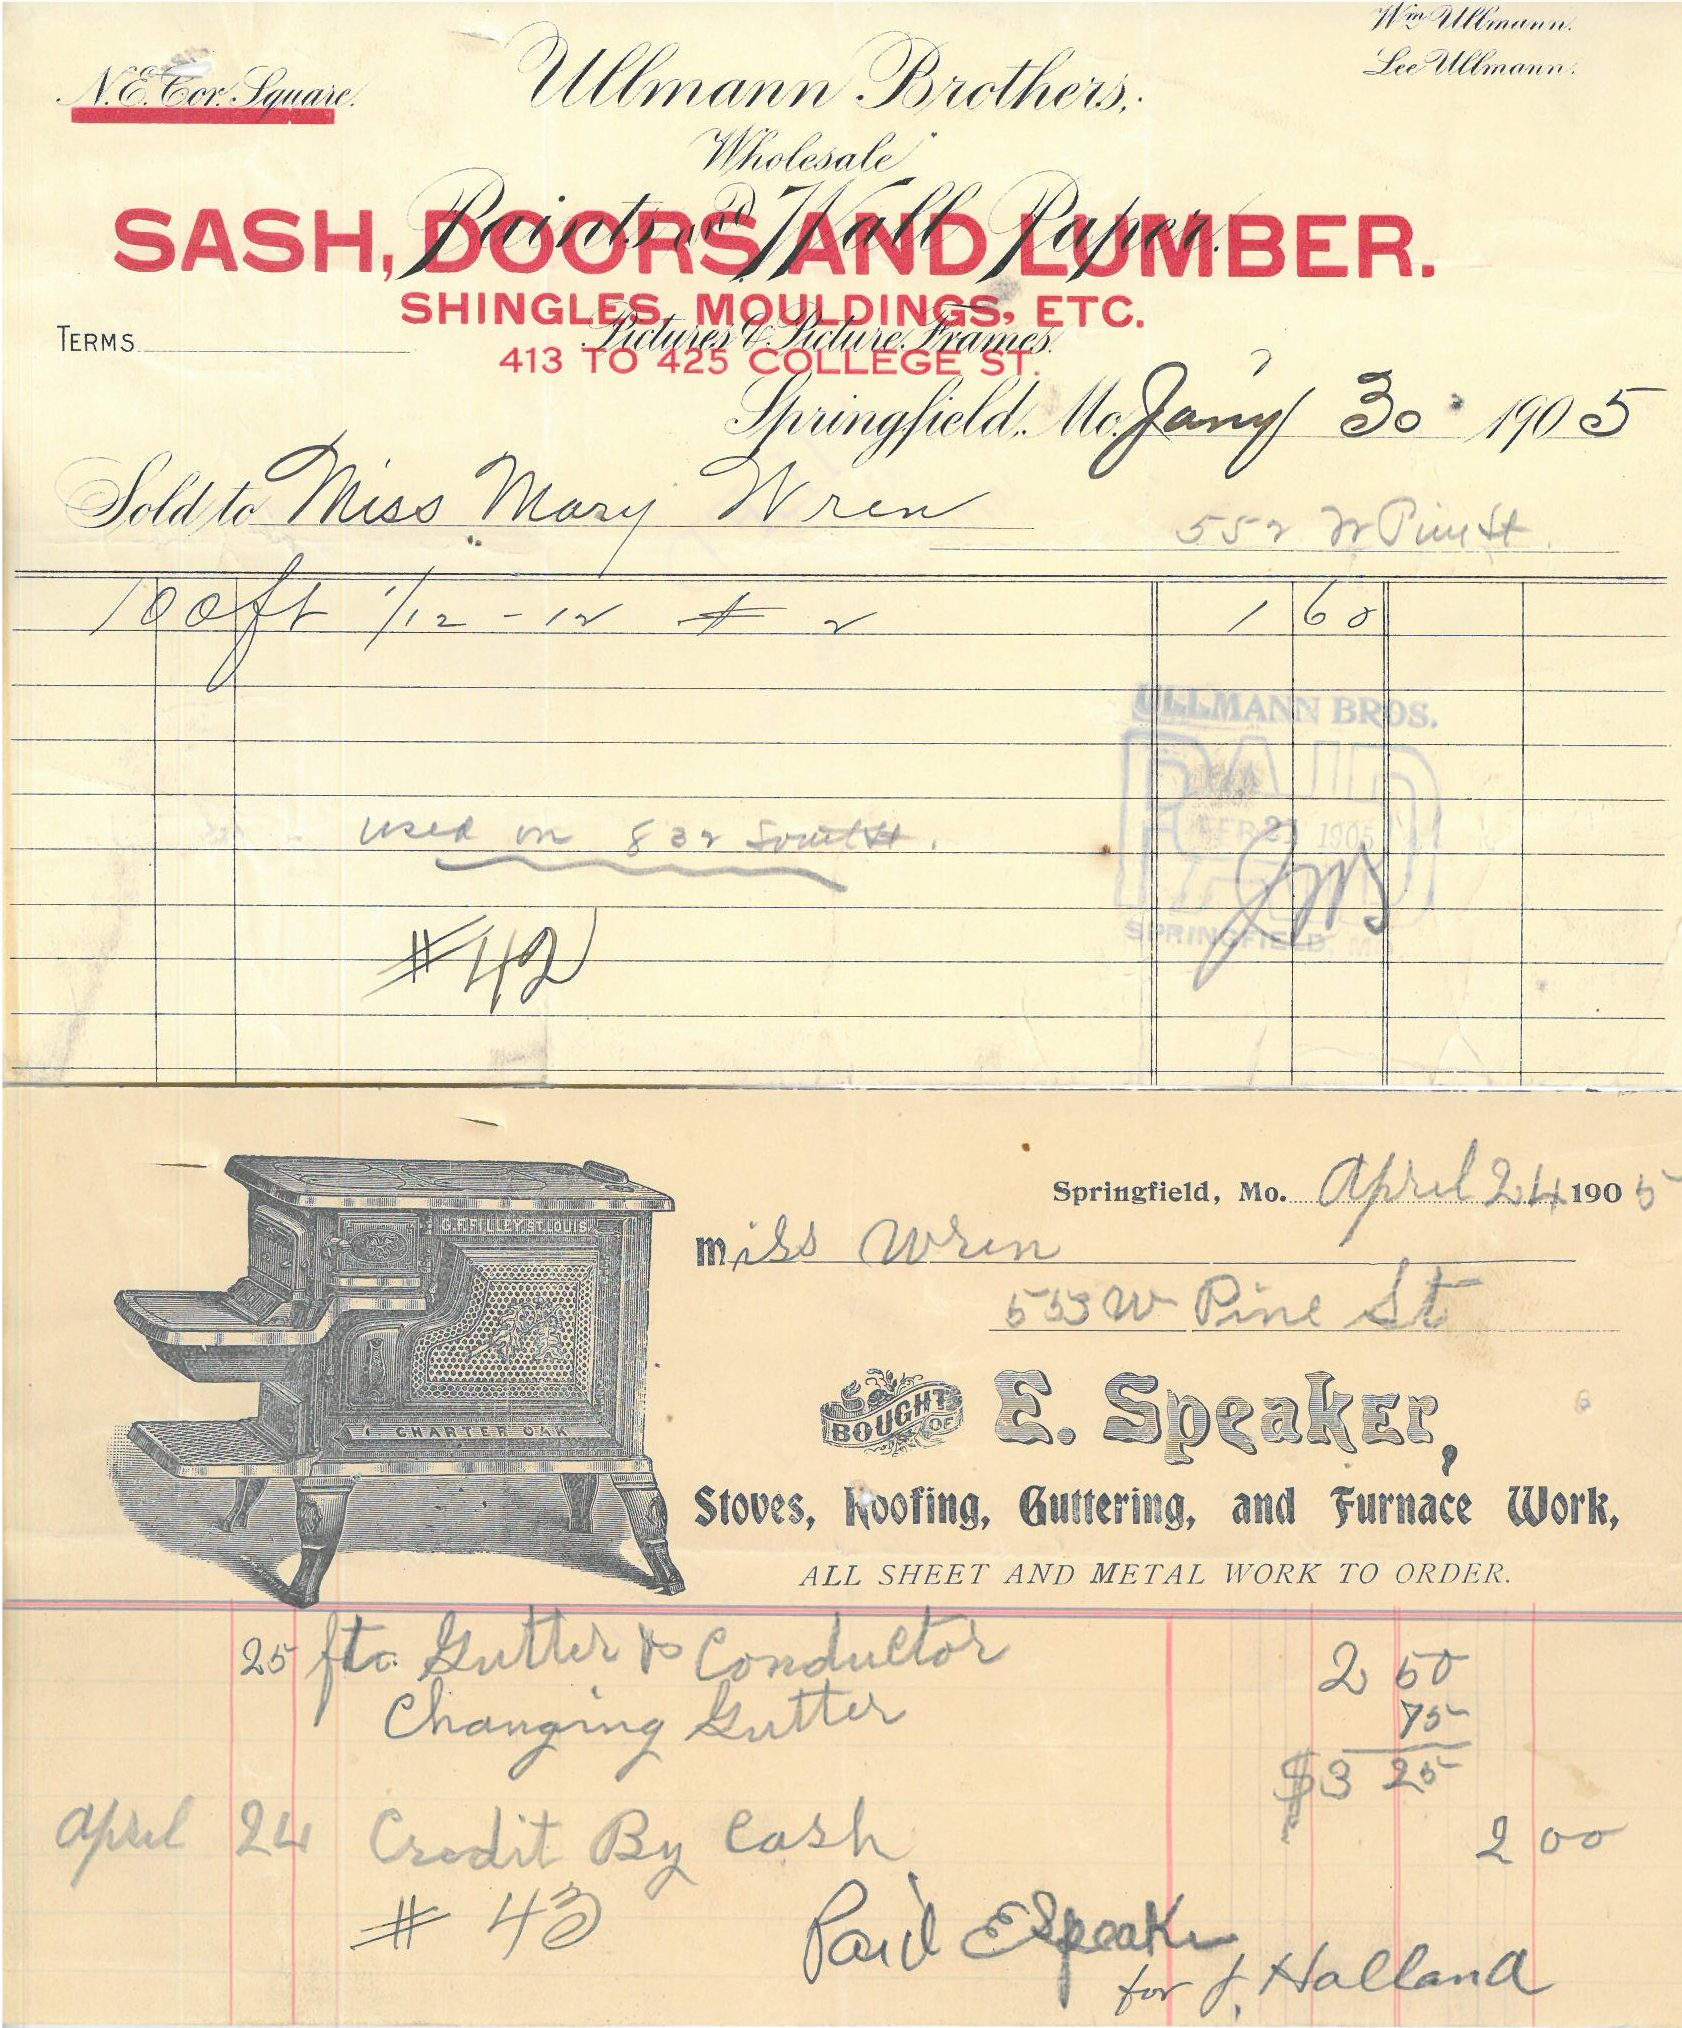 Wm Ullmann.
Lee Ullmann.
N.E. Cor. Square.
Ullmann Brothers,
Wholesale
Paints and Wall Paper.
SASH, DOORS AND LUMBER.
SHINGLES, MOULDINGS, ETC.
Pictures & Picture Frames.
413 TO 425 COLLEGE ST.
TERMS
Springfield, Mo. Jany 30 1905
Sold to Miss Mary Wren
552 W Pine St.
100 ft 1/12 - 12 # 2 1 60
ULLMANN BROS.
PAID
21 1905
SPRINGFIELD MO
used on 832 South St.
#42
Springfield, Mo. April 24 1905
Miss Wren
553 W Pine St
G.F. FILLEY ST. LOUIS
CHARTER OAK
BOUGHT OF
E. Speaker,
Stoves, Roofing, Guttering, and Furnace Work,
ALL SHEET AND METAL WORK TO ORDER.
25 ft. Gutter & Conductor 2 50
Changing Gutter 75
$3 25
April 24 Credit By Cash 2 00
# 43
Paid E Speaker
for J. Holland